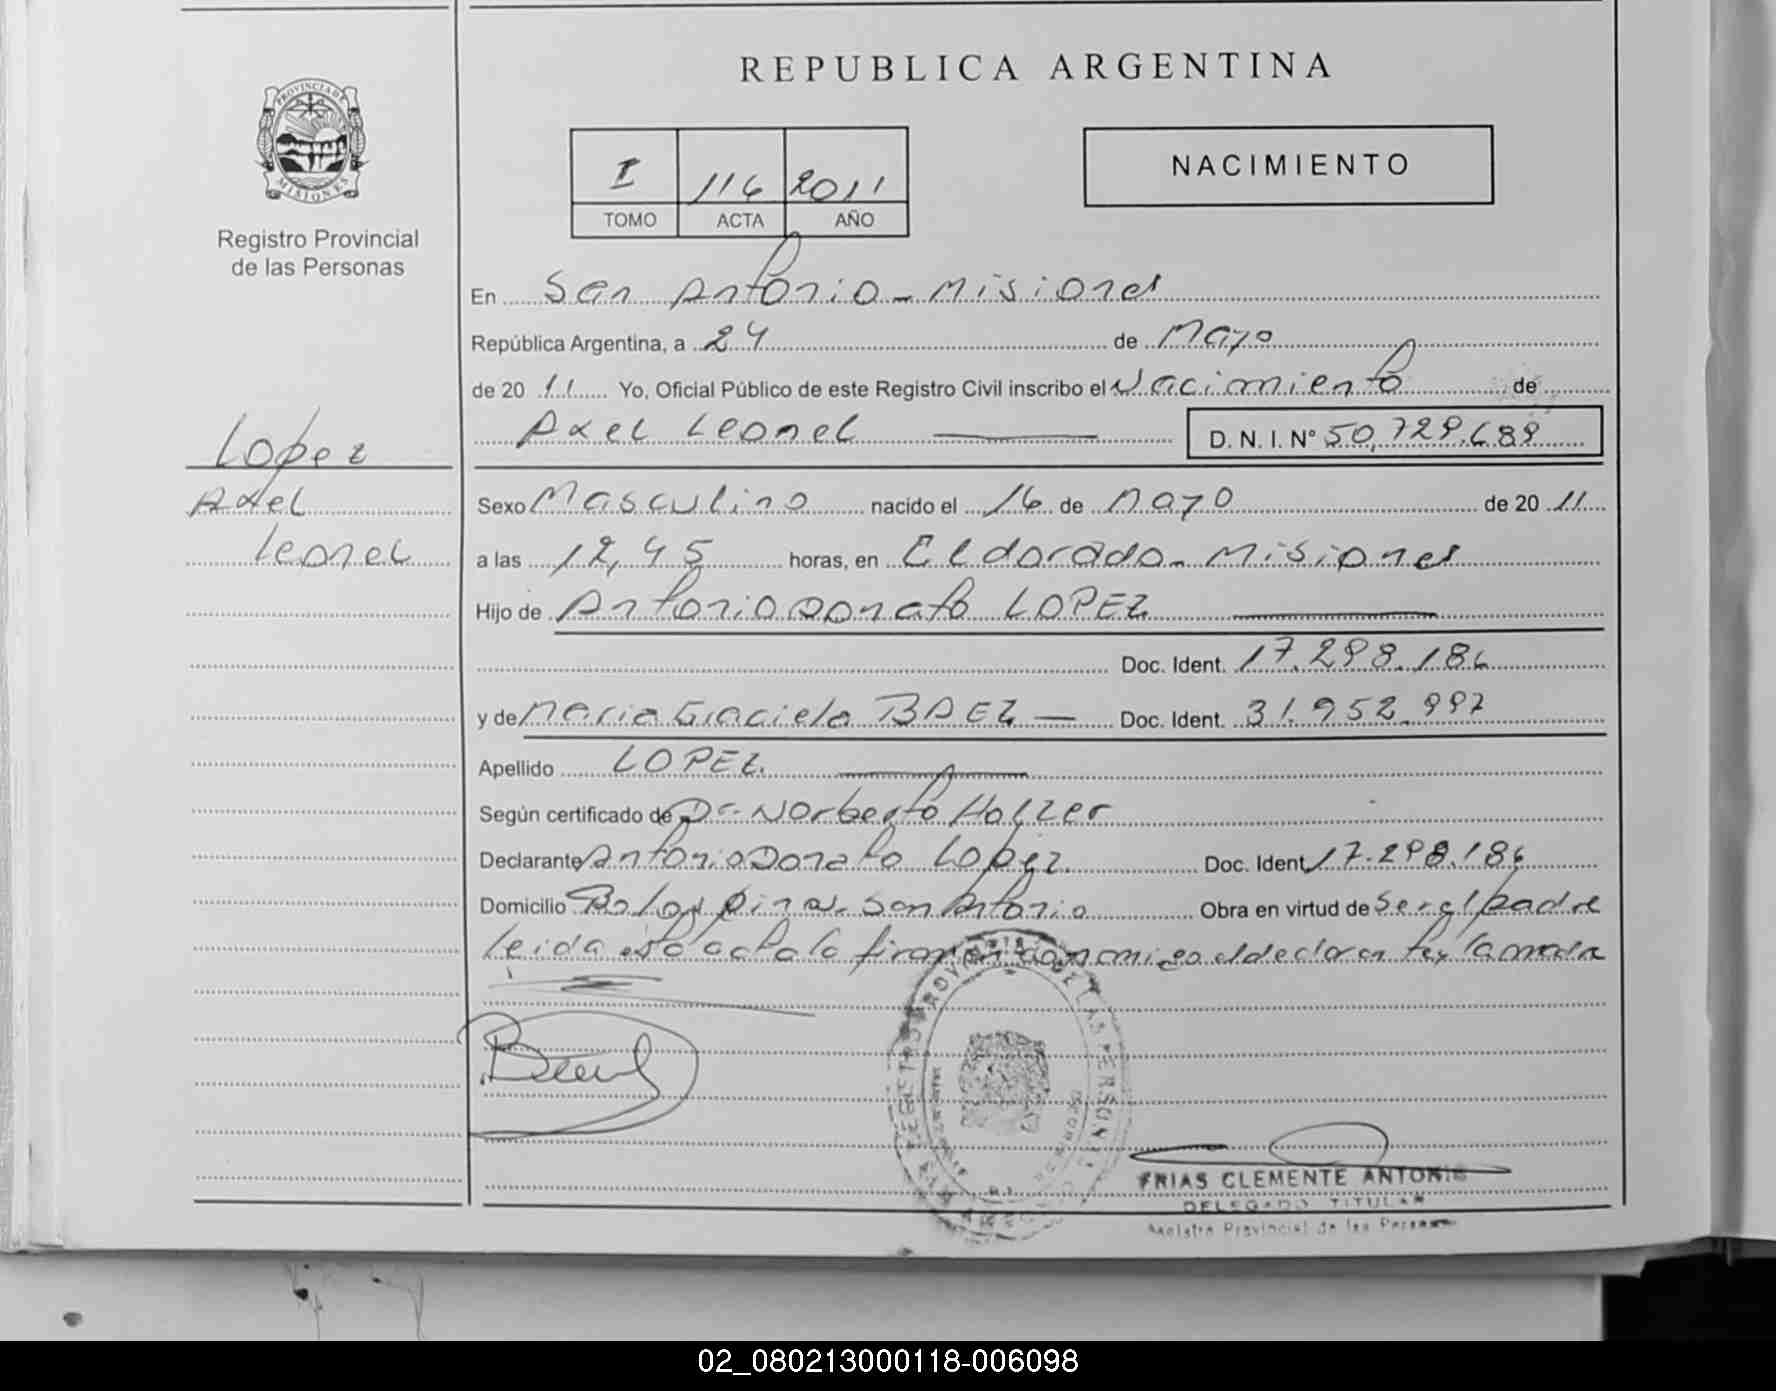 REPUBLICA ARGENTINA
PROVINCIA DE
MISIONES
Registro Provincial
de las Personas
I 116 2011
TOMO ACTA AÑO
NACIMIENTO
En San Antonio - Misiones
República Argentina, a 24 de Mayo
de 20 11 Yo, Oficial Público de este Registro Civil inscribo el Nacimiento de
Axel Leonel D. N. I. Nº 50.729.689
Lopez
Axel
Leonel
Sexo Masculino nacido el 16 de Mayo de 20 11
a las 12,45 horas, en Eldorado - Misiones
Hijo de Antonio Donato LOPEZ
Doc. Ident. 17.298.186
y de Maria Graciela BAEZ Doc. Ident. 31.952.997
Apellido LOPEZ
Según certificado de Dr Norberto Holzer
Declarante Antonio Donato Lopez Doc. Ident. 17.298.186
Domicilio San Antonio Obra en virtud de Ser el padre
Leida esta acta la firman conmigo el declarante y la madre
REGISTRO PROVINCIAL DE LAS PERSONAS
FRIAS CLEMENTE ANTONIO
DELEGADO TITULAR
Registro Provincial de las Personas
02_080213000118-006098